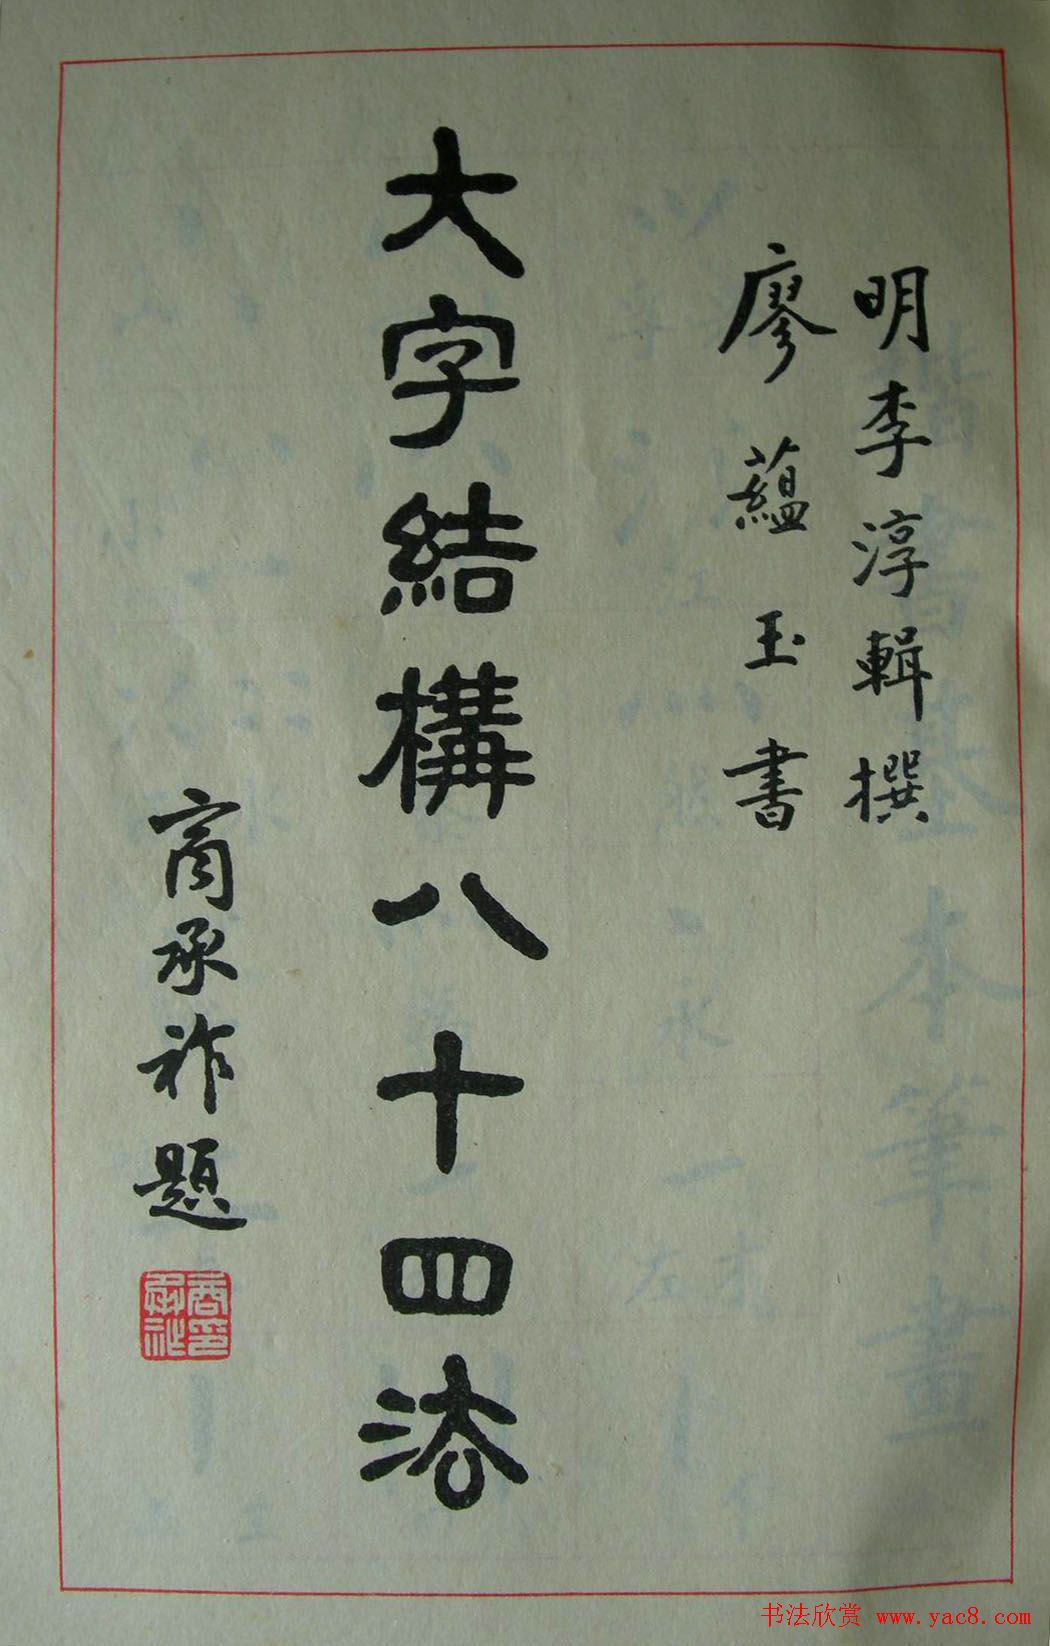 明李淳輯撰
廖蘊玉書
大字結構八十四法
商承祚題
书法欣赏 www.yac8.com